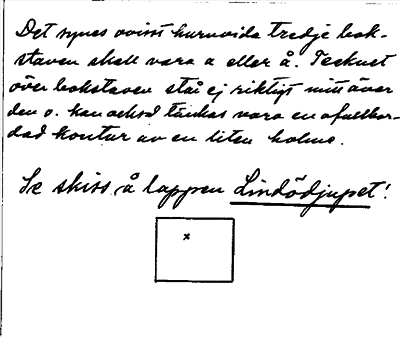 Det synes ovisst huruvida tredje bok-
staven skall vara a eller å. Tecknet
över bokstaven står ej riktigt mitt över
den o. kan också tänkas vara en ofullbor-
dad kontur av en liten holme.
Se skiss å lappen Lindödjupet!
x